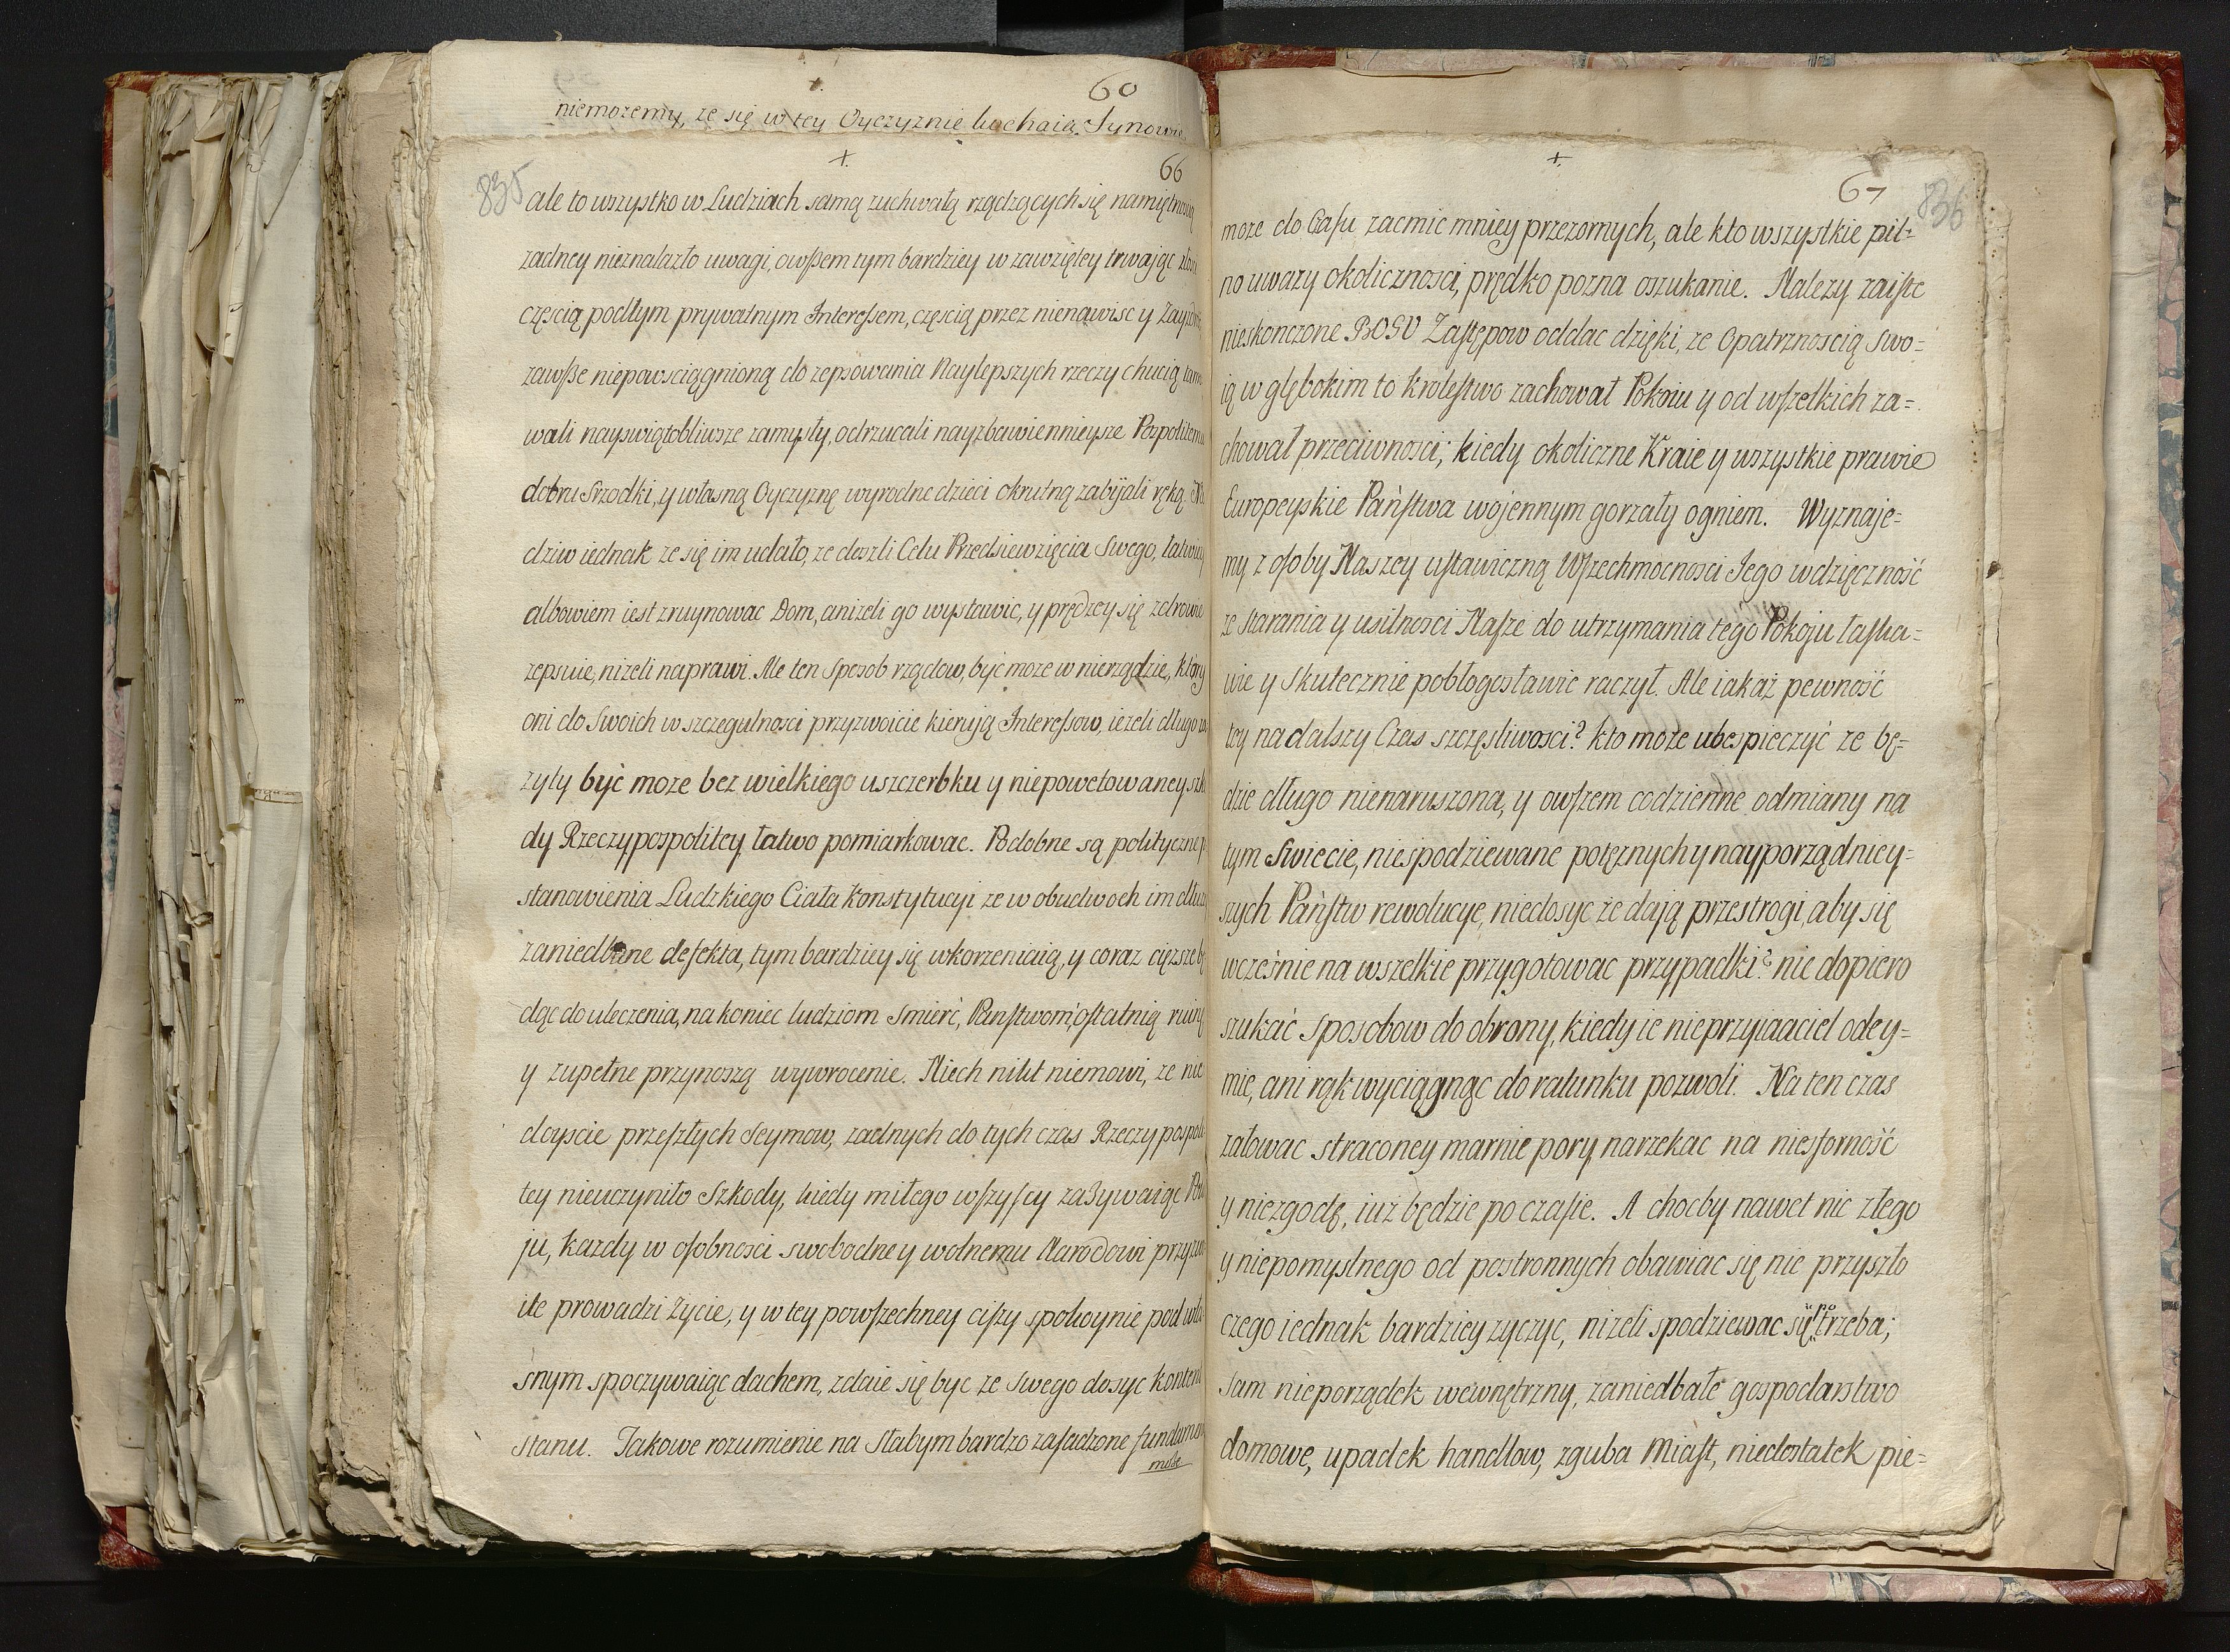 60
niemozemy, ze się w tey Oyczyznie kochaią Synowie
+
66
835
ale to wszystko w Ludziach samą zuchwałą rządzących się namiętnoscią
zadney nieznalazło uwagi, owßem tym bardziey w zawziętey trwając złosci
częscią podłym prywatnym Interessem, częscią przez nienawisc y Zayzdrosc
zawße niepowsciągnioną do zepsowania Naylepszych rzeczy chucią tamo
wali nayswiątobliwsze zamysły, odrzucali nayzbawiennieysze Pospolitemu
dobru Srzodki, y własną Oyczyznę wyrodne dzieci okrutną zabijali ręką. Nie
dziw iednak ze się im udało, ze doszli Celu Przedsiewzięcia Swego, łatwiey
albowiem iest zruynowac Dom, anizeli go wystawic, y prędzey się zdrowie
zepsuie, nizeli naprawi. Ale ten Sposob rządow, być moze w nierządzie, ktory
oni do Swoich w szczegulnosci przyzwoicie kierują Interessow, iezeli długo za
zyty być moze bez wielkiego uszczerbku y niepowetowaney szko
dy Rzeczypospolitey, łatwo pomiarkowac. Podobne są polityczne po
stanowienia Ludzkiego Ciała Konstytucyi ze w obudwoch im dłuzey
zaniedbane defekta, tym bardziey się wkorzeniaią, y coraz cięzsze bę
dąc do uleczenia, na koniec ludziom Smierć, Panstwom ostatnią ruinę
y zupełne przynoszą wywrocenie. Niech nikt niemowi, ze nie
doyscie przeszłych Seymow, zadnych do tych czas Rzeczypospoli
tey nieuczyniło Szkody, kiedy miłego wszyscy zazywaiąc Poko
ju, kazdy w osobnosci swobodne y wolnemu Narodowi przyzwo
ite prowadzi życie, y w tey powszechney ciszy spokoynie pod wła
snym spoczywaiąc dachem, zdaie się byc ze swego dosyc kontent
stanu. Jakowe rozumienie na Słabym bardzo zasadzone fundamencie
moze
+
67
836
moze do Casu zacmic mniey przezornych, ale kto wszystkie pil=
no uwazy okolicznosci, prędko pozna oszukanie. Nalezy zaiste
nieskonczone BOGU Zastępow oddac dzięki, ze Opatrznoscią Swo=
ią w głębokim to Krolestwo zachował Pokoiu y od wszelkich za=
chował przeciwnosci; kiedy okoliczne Kraie y wszystkie prawie
Europeyskie Państwa wojennym gorzały ogniem. Wyznaje=
my z osoby Naszey ustawiczną Wszechmocnosci Jego wdzięczność
ze starania y usilnosci Nasze do utrzymania tego Pokoju łaska=
wie y Skutecznie pobłogosławic raczył. Ale iakaż pewność
tey na dalszy Czas szczęsliwosci? kto może ubespieczyć ze bę=
dzie długo nienaruszona, y owszem codzienne odmiany na
tym Swiecie, niespodziewane potęznych y nayporządniey=
szych Państw rewolucye, niedosyc że dają przestrogi, aby się
wcześnie na wszelkie przygotowac przypadki? nie dopiero
szukać sposobow do obrony, kiedy ie nieprzyiaaciel odey=
mie, ani rąk wyciągnąc do ratunku pozwoli. Na ten czas
załowac straconey marnie pory, narzekac na niesforność
y niezgodę, iuż będzie po czasie. A chocby nawet nic złego
y niepomyslnego od postronnych obawiac się nie przyszło
czego iednak bardziey zyczyc, nizeli spodziewac się potrzeba;
sam nieporządek wewnętrzny, zaniedbałe gospodarstwo
domowe, upadek handlow, zguba Miast, niedostatek pie=